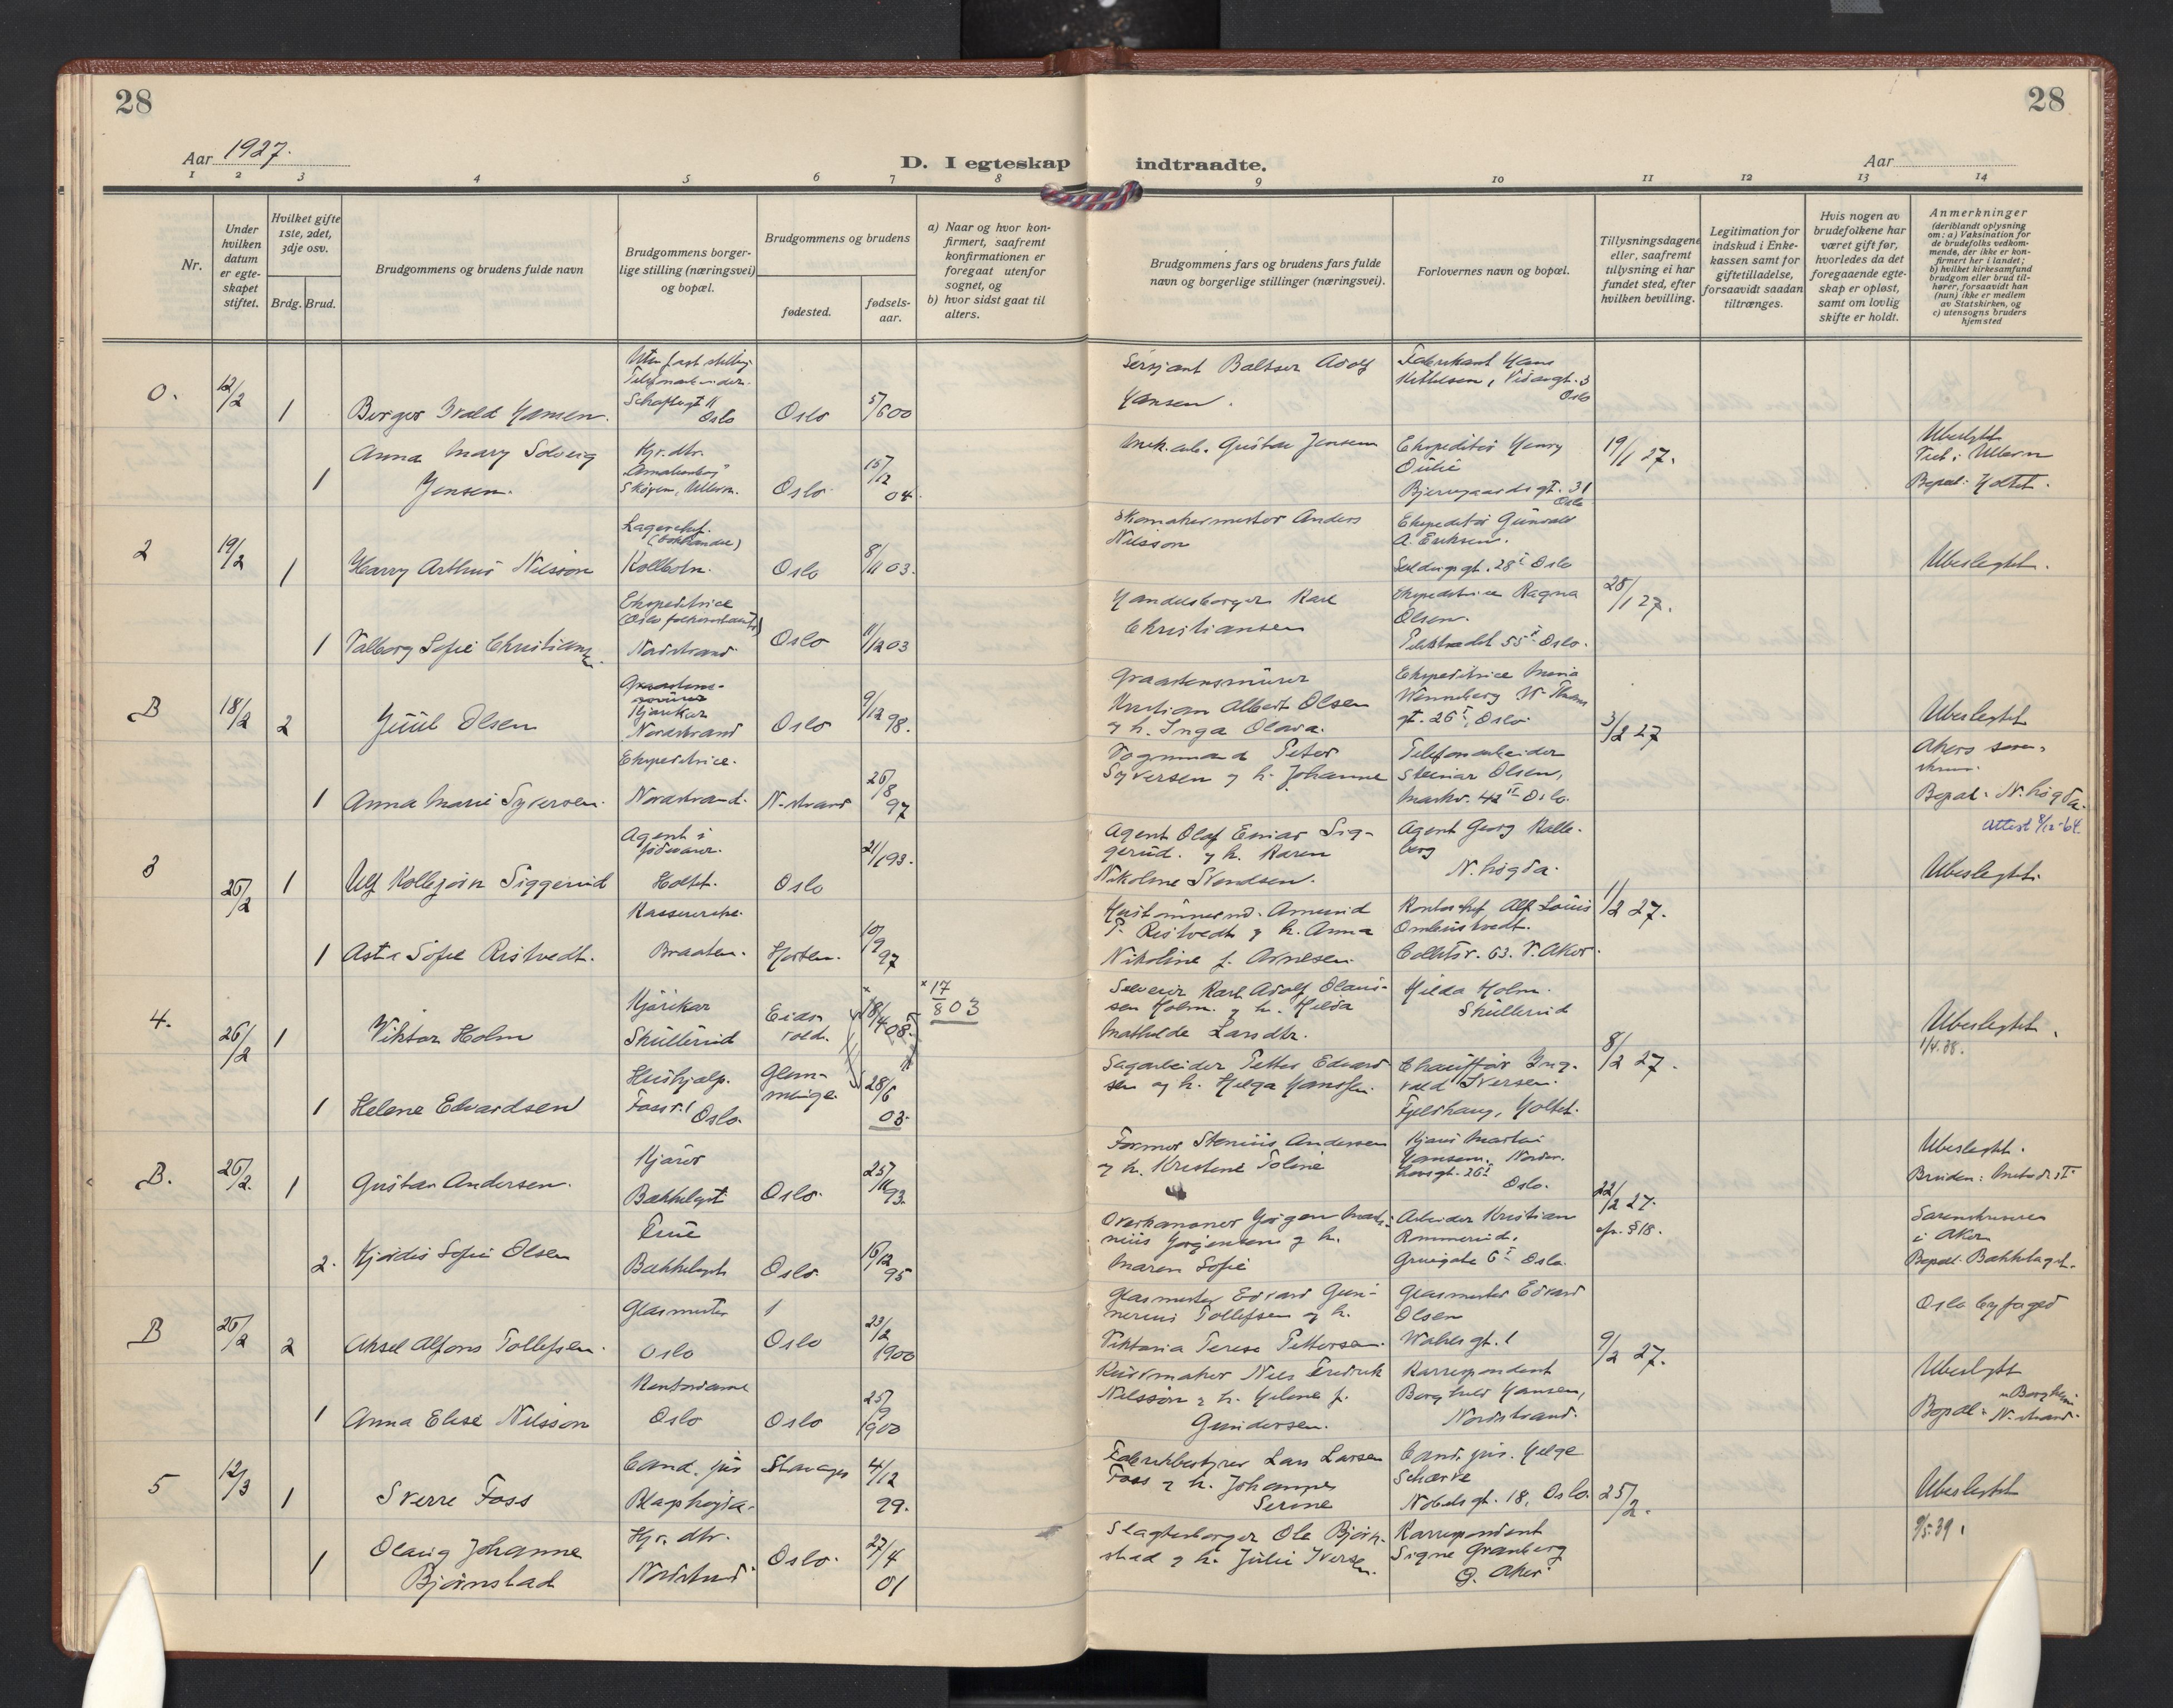 28
28
Aar 1927.
D. I egteskap indtraadte.
Aar
1 2 3 4 5 6 7 8 9 10 11 12 13 14
Nr.
Under hvilken datum er egte-skapet stiftet.
Hvilket gifte 1ste, 2det, 3dje osv.
Brdg. Brud.
Brudgommens og brudens fulde navn
Brudgommens borger-lige stilling (næringsvei) og bopæl.
Brudgommens og brudens
fødested.
fødsels-aar.
a) Naar og hvor kon-firmert, saafremt konfirmationen er foregaat utenfor sognet, og
b) hvor sidst gaat til alters.
Brudgommens fars og brudens fars fulde navn og borgerlige stillinger (næringsvei).
Forlovernes navn og bopæl.
Tillysningsdagene eller, saafremt tillysning ei har fundet sted, efter hvilken bevilling.
Legitimation for indskud i Enke-kassen samt for giftetilladelse, forsaavidt saadan tiltrænges.
Hvis nogen av brudefolkene har været gift før, hvorledes da det foregaaende egte-skap er opløst, samt om lovlig skifte er holdt.
Anmerkninger
(deriblandt oplysning om: a) Vaksination for de brudefolks vedkom-mende, der ikke er kon-firmert her i landet;
b) hvilket kirkesamfund brudgom eller brud til-hører, forsaavidt han (hun) ikke er medlem av Statskirken, og
c) utensogns bruders hjemsted
O. 12/2 1 Birger Ivald Hansen.
Oslo
Oslo 5/6 00
Sersjant Baltser Adolf
Hansen.
Fabrikant Hans
Oslo
1 Anna Mary Solveig
Jensen.
Hjr. dtr.
Skøyen, Ullern.
Oslo 15/12 04.
Mek. arb. Gustav Jensen
Ekspeditør Henry
Bjerregaardsgt. 31
Oslo
19/1 27.
Ubeslegtet
Viet i Ullern
Bopæl: Holtet.
2 19/2 1 Harry Arthur Nilsson
Kolbotn.
Oslo 8/11 03.
Skomakermester Anders
Nilsson
Ekspeditør Gunvald
A. Eriksen.
28 I Oslo
Ubeslegtet.
1 Valborg Sofie Christiansen.
Ekspeditrice
Nordstrand
Oslo 11/12 03
Handelsborger Karl
Christiansen
Ekspeditrice Ragna
Olsen.
55 I Oslo.
28/1 27.
B 18/2 2 Juul Olsen
Kjørekar
Nordstrand
Oslo 9/12 98.
Kristian Albert Olsen
og h. Inga Olava.
Ekspeditrice Maria
Wenneberg W. Thranes
gt. 26 I, Oslo
3/2 27
Ubeslegtet
1 Anna Marie Syversen.
Ekspeditrice.
Nordstrand.
N-strand
26/8 97
Vognmand Peter
Syversen og h. Johanne
Telefonarbeider
Steinar Olsen,
Markv. 42 II Oslo.
Akers soren-
skriv.
Bopæl: N. høgda.
Attest 8/12-64.
3 26/2 1 Ulf Kollbjørn Siggerud
Agent i
Holtet.
Oslo
21/1 93.
Agent Olaf Einar Sig-
gerud. og h. Karen
Nikoline Svendsen.
Agent Georg Kalle-
berg
N. høgda.
Ubeslegtet.
1 Asta Sofie Ristvedt.
Kassererske.
Braaten.
Horten.
10/9 97
P. Ristvedt og h. Anna
Nikoline f. Arnesen.
Kontorchef Alf Louis
Omholtvedt.
Colletsv. 63. V. Aker.
11/2 27.
4. 26/2 1 Viktor Holm
Kjørekar
Skullerud
Eids-
vold.
x 18/4 08
x 17/8 03
Seleier Karl Adolf Olaus-
sen Holm. og h. Hilda
Mathilde Larsdtr.
Hilda Holm.
Skullerud
Ubeslegtet.
1/4. 38.
1 Helene Edvardsen
Hushjelp.
Fossv. 1
Oslo.
Glem-
minge.
28/6 03.
Sagarbeider Petter Edvard-
sen og h. Helga Hanssen.
Chauffør Ing-
vald Iversen.
Fjeldhaug, Holtet.
8/2 27.
B. 26/2. 1 Gustav Andersen.
Kjører
Bækkelaget
Oslo.
25/11 93.
Former Stenius Andersen
og h. Kristine Toline
Kjører Martin
Hansen, Norder-
hovsgt. 26 I
Oslo.
22/2 27.
cfr. § 18.
Ubeslegtet.
Bruden: Metodist
2. Hjørdis Sofie Olsen
Frue
Bækkelaget
Oslo.
16/12 95
nius Jørgensen og h.
Maren Sofie
Arbeider Kristian
Rommerud,
Gruegate 6 I Oslo.
Sorenskriveren
i Aker
Bopæl. Bækkelaget.
B 26/2 2 Aksel Alfons Tollefsen.
Glasmester
Oslo
Oslo
23/2 1900
Glasmester Edvard Gun-
nerius Tollefsen og h.
Viktoria Terese Pettersen.
Glasmester Edvard
Olsen
Wolds gt. 1
9/2 27.
Oslo byfoged
1 Anna Elise Nilsson
Kontordame
Oslo
Oslo
25/9 1900
Kurvmaker Nils Fredrik
Nilsson og h. Helene f.
Gundersen.
Korrespondent
Borghild Hansen,
Nordstrand.
Ubeslegtet
Bopæl: N. strand.
5 12/3 1 Sverre Foss
Cand. jur
Stavanger
4/12 99.
Fabrikbestyrer Lars Larsen
Foss og h. Johanne
Serine
Cand. jur. Helge
Schærve
Nobels gt. 18, Oslo.
25/2.
Ubeslegtet
9/5-39.
1 Olaug Johanne
Bjørnstad
Hjr. dtr.
Nordstrand
Oslo.
27/4 01
Slagterborger Ole Bjørn-
stad og h. Julie Iversen.
Korrespondent
Signe Granberg
Ø. Aker.